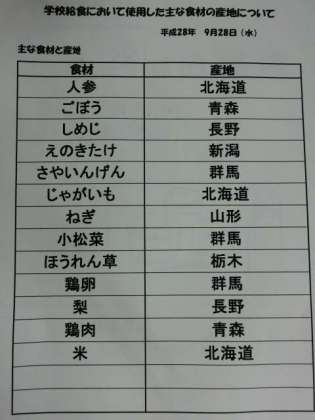 学校給食において使用した主な食材の産地について
平成28年 9月28日(水)
主な食材と産地
食材 産地
人参 北海道
ごぼう 青森
しめじ 長野
えのきたけ 新潟
さやいんげん 群馬
じゃがいも 北海道
ねぎ 山形
小松菜 群馬
ほうれん草 栃木
鶏卵 群馬
梨 長野
鶏肉 青森
米 北海道